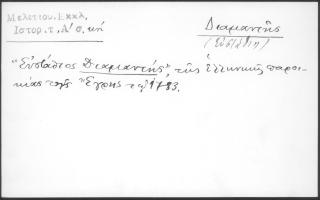 Μελετίου. Εκκλ.
Ιστορ. τ. Α' σ. κή
Διαμαντής
(Ευστάθιος)
"Ευστάθιος Διαμαντής", της ελληνικής παροι-
κίας της Έγρης τω 1783.